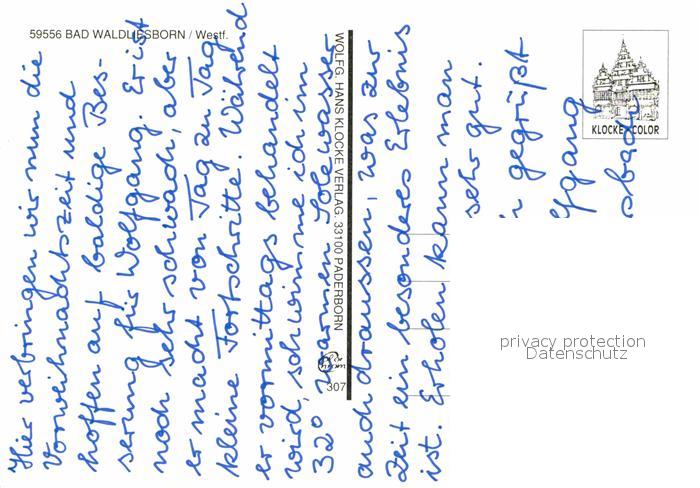 59556 BAD WALDLIESBORN / Westf.
Hier verbringen wir nun die
Vorweihnachtszeit und
hoffen auf baldige Bes-
serung für Wolfgang. Er ist
noch sehr schwach, aber
er macht von Tag zu Tag
kleine Fortschritte. Während
er vormittags behandelt
wird, schwimme ich im
32° warmen Solewasser
auch draussen, was zur
Zeit ein besonderes Erlebnis
ist. Erholen kann man
sehr gut.
gegrüßt
WOLFG. HANS KLOCKE VERLAG, 33100 PADERBORN
307
KLOCKE COLOR
privacy protection
Datenschutz